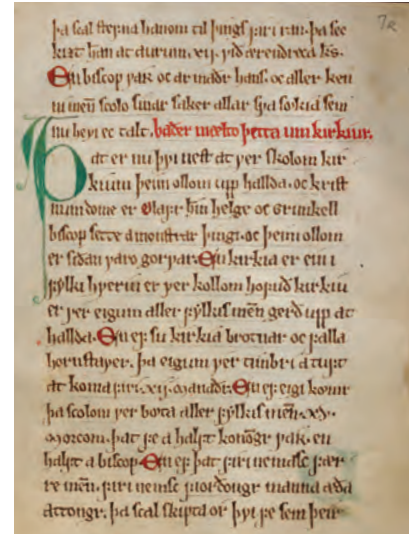 7r
þa scal stefna hanom til þings firi ran. þa sec
kizt han at aurum .xij. við ærendreca ks.
En biscop vár oc armaðr hans. oc aller ken
ni men̄ scolo sinar saker allar sva søkia sem
nu hevi ec talt. baðer mælto þetta um kirkiur.
Þat er nu þvi nest at ver skolom kir
kium þeim ollom upp hallda. oc krist
nundome er Olafr hin helge oc Grimkell
biscop sette a monstrar þingi. oc þeim ollom
er siðan varo gorvar. En kirkia er ein i
fylki hveriu er ver kollom hofuð kirkiu
er ver eigum aller fylkis men̄ gerð upp at
hallda. En ef su kirkia brotnar oc falla
hornstaver. þa eigum ver timbri a tuft
at koma firi .xij. manaðr. En ef eigi komr
þa scolom ver bøta aller fylkis men̄ .xv.
morcom. þat fe a halft konongr vár. en
halft a biscop. En ef þat firi nemasc fær
re men̄. firi nemsc fiorðongr manna æða
attongr. þa scal skipta or þvi fe sem þeir